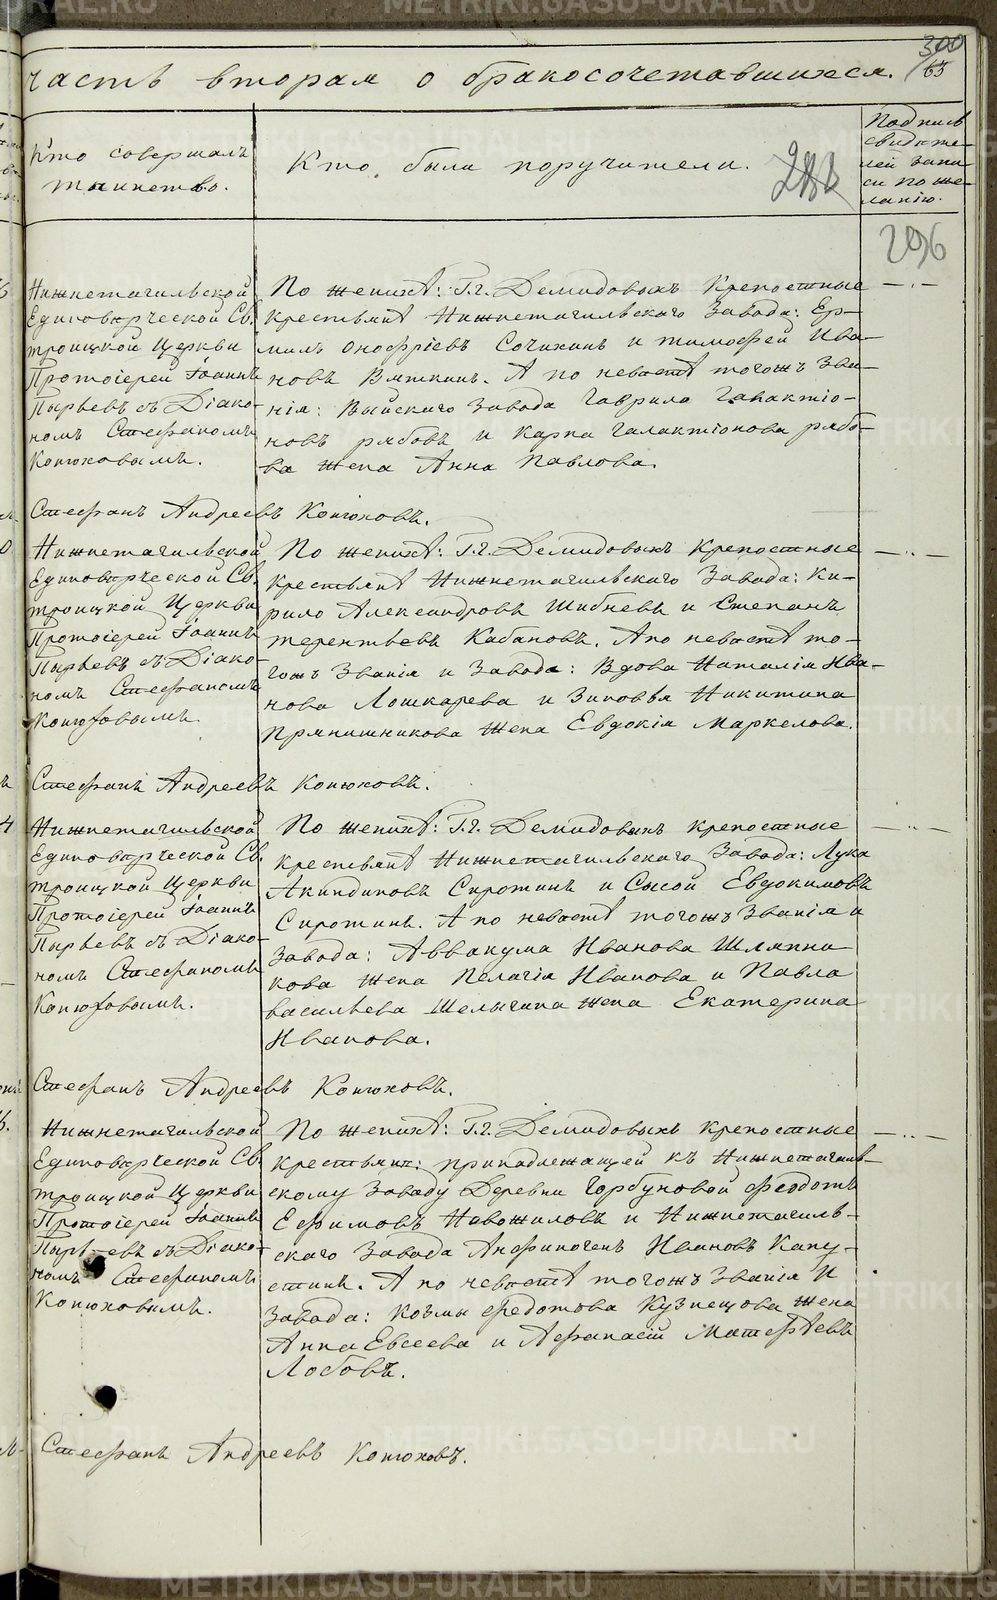 METRIKI.GASO-URAL.RU
300
65
часть вторая о бракосочетавшихся.
Кто совершалъ
таинство.
Кто были поручители.
Подпись
свидѣте-
лей запи-
си по же-
ланію.
296
Нижнетагильской
Единовѣрческой Св.
троицкой Церкви
Протоіерей Іоаннъ
Пырьевъ съ Діако-
номъ Стефаномъ
Конюховымъ.
По женихѣ: Г.г. Демидовыхъ Крепостные
крестьянѣ Нижнетагильскаго Завода: Ер-
милъ Онофріевъ Сочихинъ и тимофей Ива-
новъ Вяткинъ. А по невѣстѣ тогожъ Зва-
нія: Выйскаго Завода Гаврило Галактіо-
новъ рябовъ и Карпа галактіонова рябо-
ва жена Анна Павлова.
Стефанъ Андреевъ Конюховъ.
Нижнетагильской
Единовѣрческой Св.
троицкой Церкви
Протоіерей Іоаннъ
Пырьевъ съ Діако-
номъ Стефаномъ
Конюховымъ.
По женихѣ: Г.г. Демидовыхъ Крепостные
крестьянѣ Нижнетагильскаго Завода: Ки-
рило Александровъ Шибневъ и Степанъ
терентьевъ Кабановъ. А по невѣстѣ то-
гожъ Званія и Завода: Вдова Наталія Ива-
нова Лошкарева и Зиновья Никитина
Прянишникова Жена Евдокія Маркелова.
Стефанъ Андреевъ Конюховъ.
Нижнетагильской
Единовѣрческой Св.
троицкой Церкви
Протоіерей Іоаннъ
Пырьевъ съ Діако-
номъ Стефаномъ
Конюховымъ.
По женихѣ: Г.г. Демидовыхъ крепостные
крестьянѣ Нижнетагильскаго Завода: Лука
Акиндиновъ Сиротинъ и Сысой Евдокимовъ
Сиротинъ. А по невѣстѣ тогожъ Званія и
Завода: Аввакума Иванова Шляпни-
кова жена Пелагія Иванова и Павла
васильева Шелыгина жена Екатерина
Иванова.
Стефанъ Андреевъ Конюховъ.
Нижнетагильской
Единовѣрческой Св.
троицкой Церкви
Протоіерей Іоаннъ
Пырьевъ съ Діако-
номъ Стефаномъ
Конюховымъ.
По женихѣ: Г.г. Демидовыхъ крепостные
крестьянѣ: принадлежащей къ Нижнетагиль-
скому Заводу Деревни Горбуновой Феодотъ
Ефимовъ Новожиловъ и Нижнетагиль-
скаго Завода Анфиногенъ Ивановъ Капу-
стинъ. А по невѣстѣ тогожъ Званія и
Завода: козмы федотова Кузнецова жена
Анна Евсеева и Афанасій Матфѣевъ
Лобовъ.
Стефанъ Андреевъ Конюховъ.
METRIKI.GASO-URAL.RU